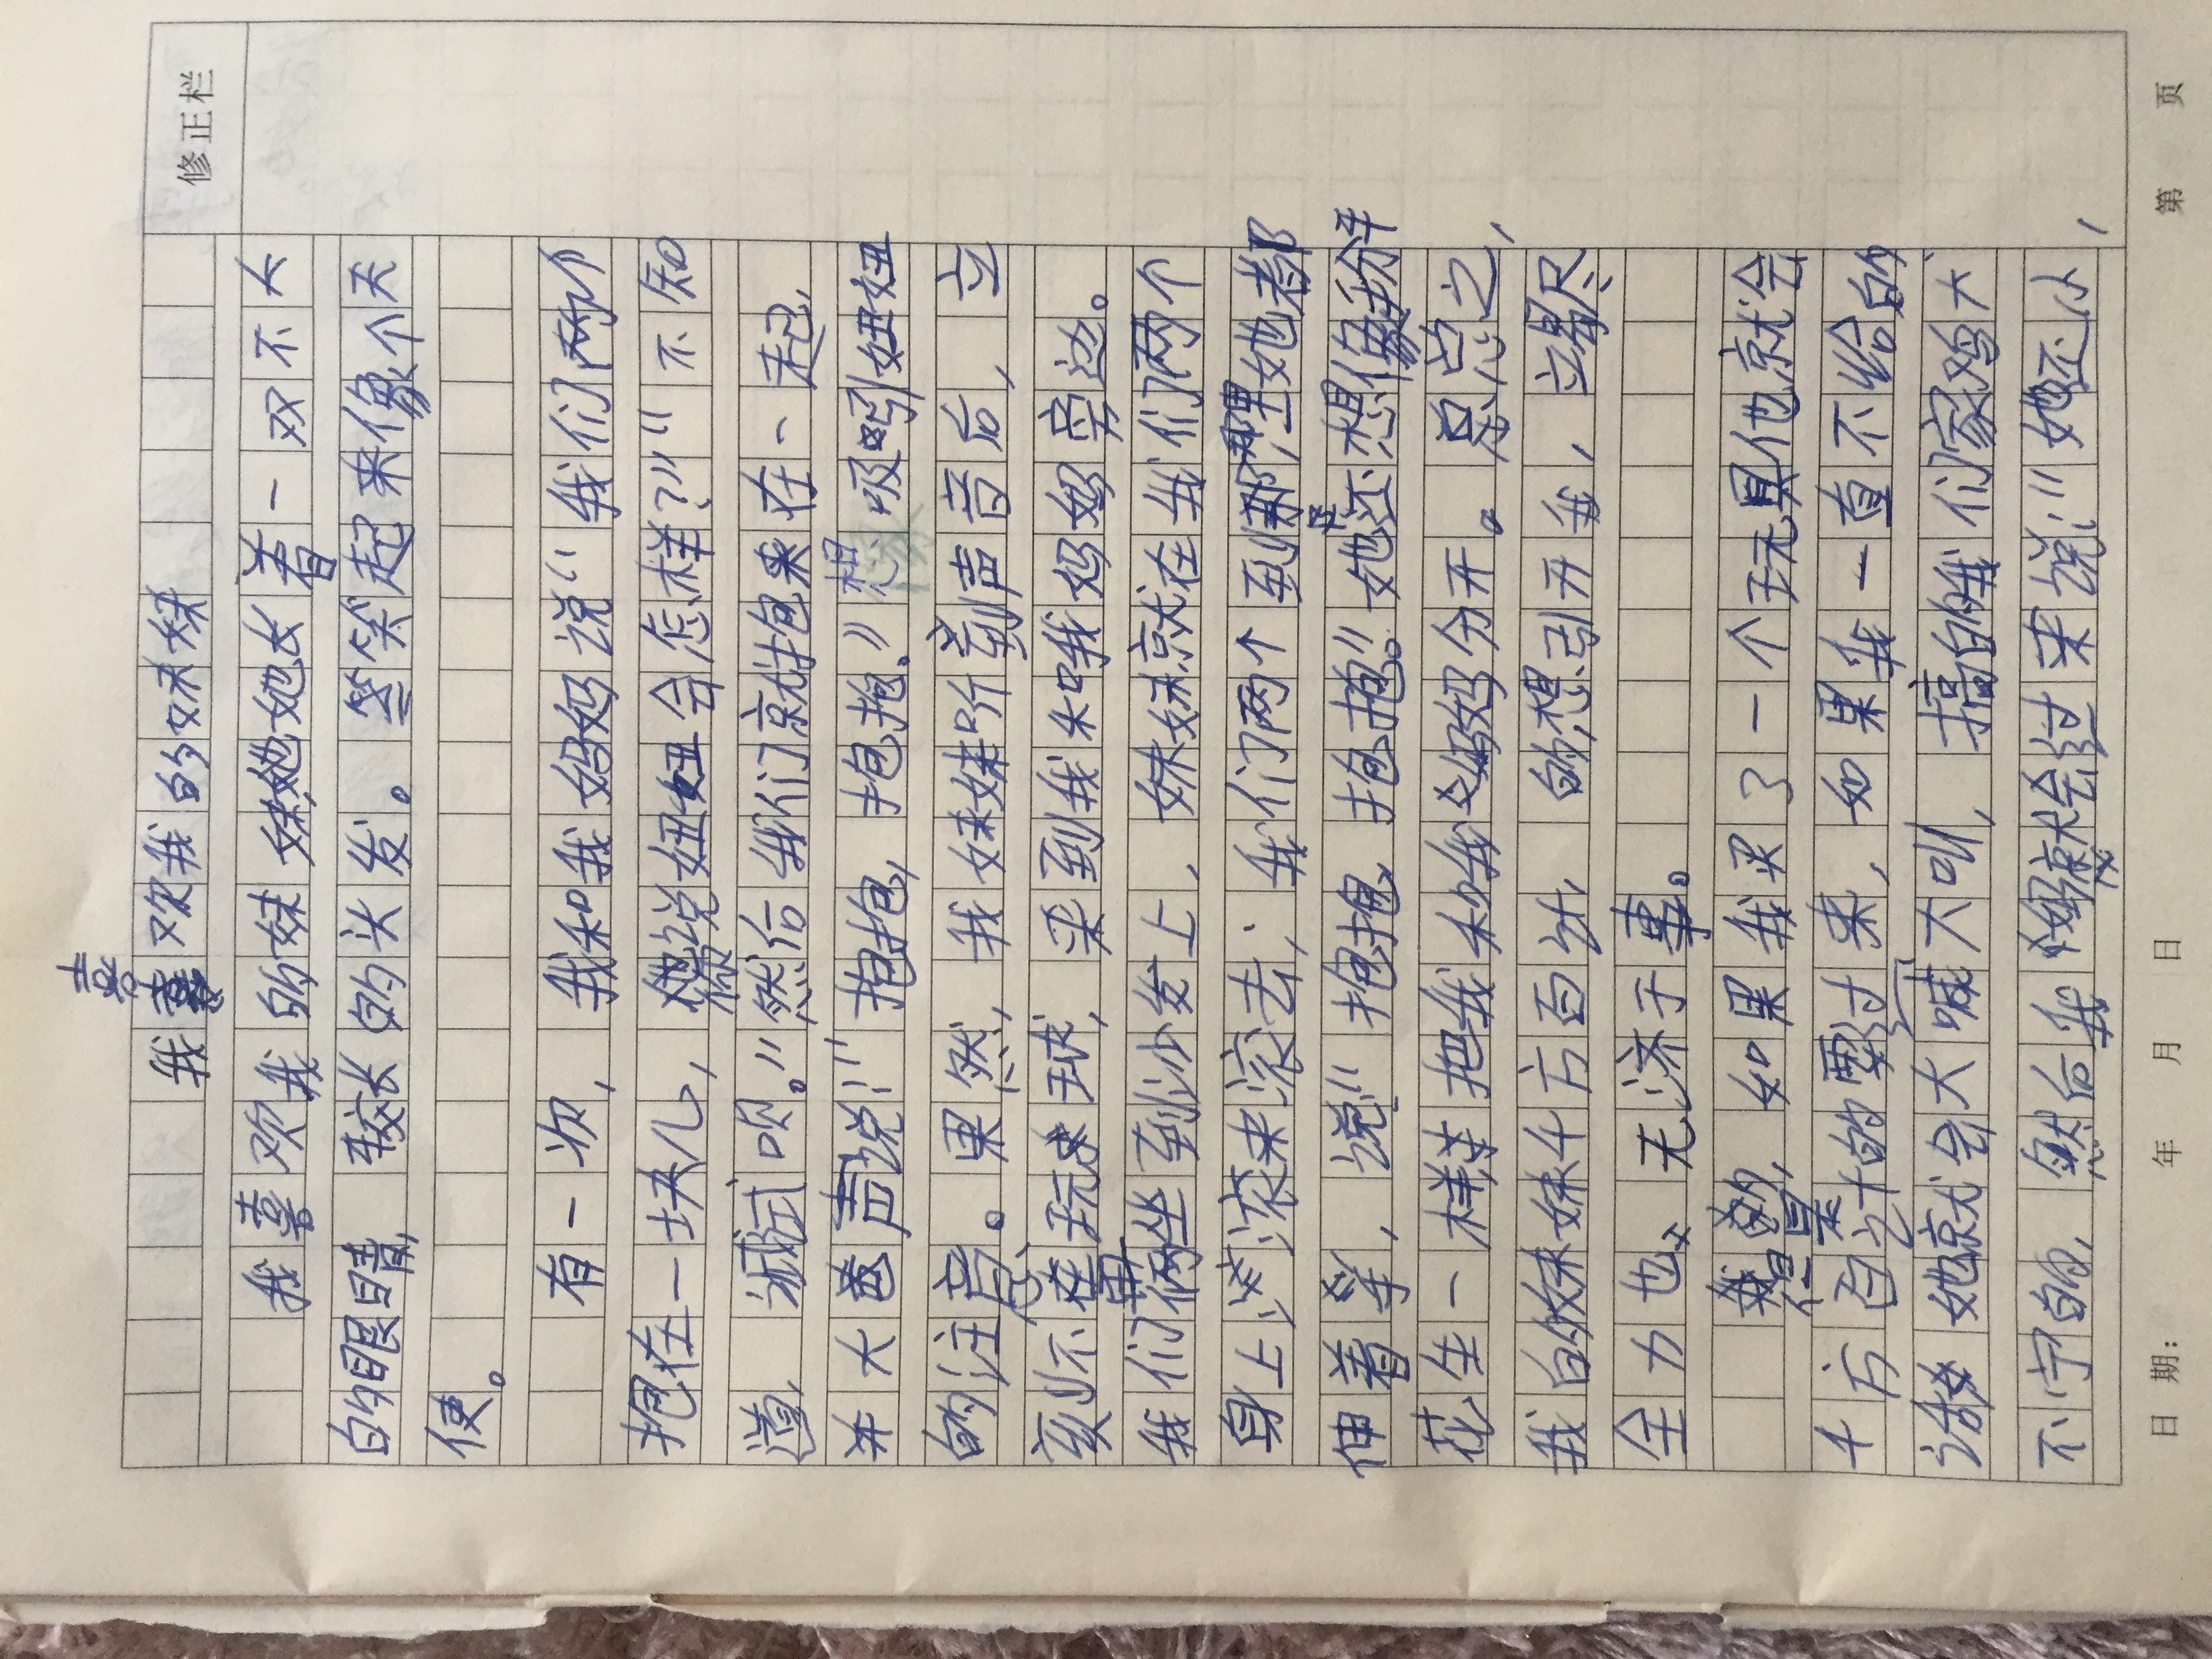 修正栏
我喜欢我的妹妹
我喜欢我的妹妹她她长着一双不大
的眼睛,较长的头发。笑起来像个天
使。
有一次,我和我妈妈说:“我们两个
抱在一块儿,说妞妞会怎样?”“不知
道,试试呗。”然后我们就抱来在一起,
并大声说:“抱抱,抱抱。”想吸引妞妞
的注意。果然,我妹妹听到声音后,立
刻不在玩球,来到我和我妈妈旁边。
我们俩坐到沙发上,妹妹就在我们两个
身上滚来滚来滚去,我们两个到哪里她都
伸着手,说:“抱抱,抱抱。”她还想像掰
花生一样把我和我妈妈分开。总之,
我的妹妹千方百计,的想引开我,竭尽
全力也无济于事。
如果我买了一个玩具他就会
千方百计的要过来,如果我一直不给的
话她就会大喊大叫,搞的我们家鸡犬
不宁的,然后我就会过来说:“她还小,
日期: 年 月 日 第 页